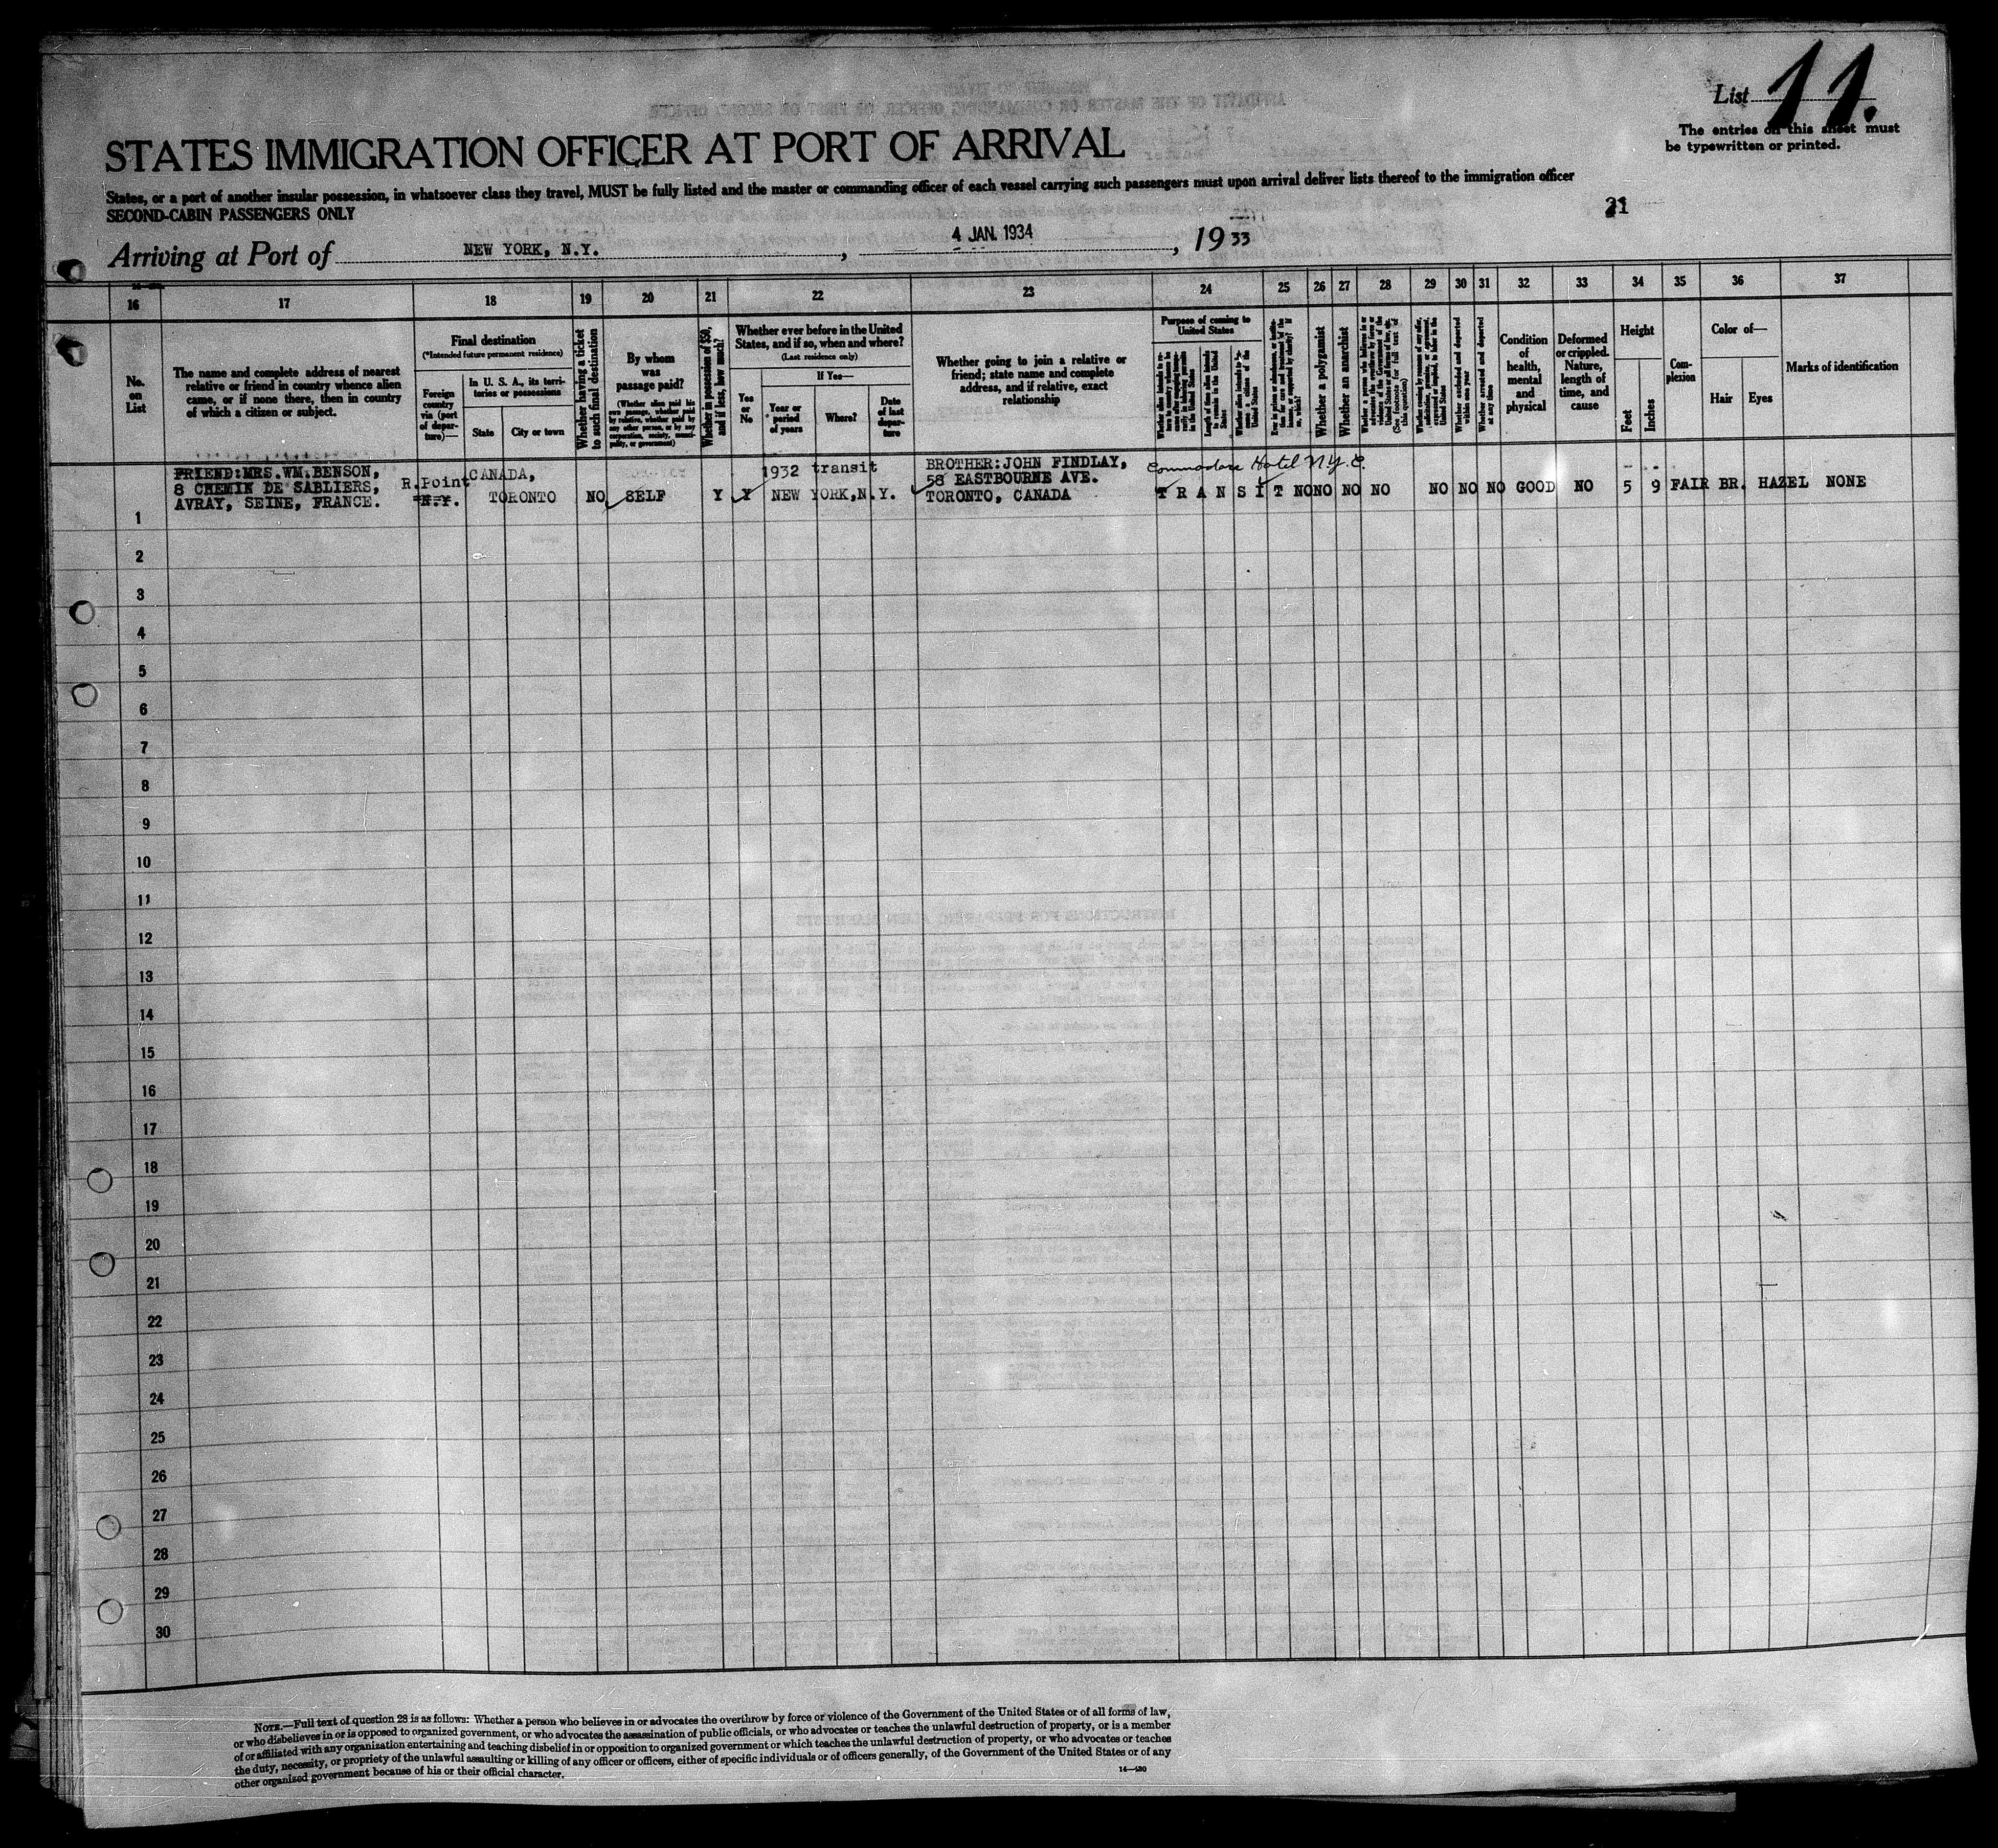 List 11.
The entries on this sheet must
be typewritten or printed.
STATES IMMIGRATION OFFICER AT PORT OF ARRIVAL
States, or a port of another insular possession, in whatsoever class they travel, MUST be fully listed and the master or commanding officer of each vessel carrying such passengers must upon arrival deliver lists thereof to the immigration officer
SECOND-CABIN PASSENGERS ONLY
21
Arriving at Port of NEW YORK, N.Y., 4 JAN. 1934, 1933
16 17 18 19 20 21 22 23 24 25 26 27 28 29 30 31 32 33 34 35 36 37
No.
on
List
The name and complete address of nearest
relative or friend in country whence alien
came, or if none there, then in country
of which a citizen or subject.
Final destination
(*Intended future permanent residence)
Foreign
country
via (port
of depar-
ture)—
In U. S. A., its terri-
tories or possessions
State
City or town
Whether having a ticket
to such final destination
By whom
was
passage paid?
(Whether alien paid his
own passage, whether paid
by relative, whether paid by
any other person, or by any
corporation, society, munici-
pality, or government)
Whether in possession of $50,
and if less, how much?
Whether ever before in the United
States, and if so, when and where?
(Last residence only)
Yes
or
No
If Yes—
Year or
period
of years
Where?
Date
of last
depar-
ture
Whether going to join a relative or
friend; state name and complete
address, and if relative, exact
relationship
Purpose of coming to
United States
Length of time alien intends
to remain in the United
States
Whether a polygamist
Whether an anarchist
(See footnote for full text of
this question)
Whether excluded and deported
within one year
Whether arrested and deported
at any time
Condition
of
health,
mental
and
physical
Deformed
or crippled.
Nature,
length of
time, and
cause
Height
Feet
Inches
Com-
plexion
Color of—
Hair
Eyes
Marks of identification
FRIEND:MRS.WM.BENSON,
8 CHEMIN DE SABLIERS,
AVRAY, SEINE, FRANCE.
R.Point
N.Y.
CANADA,
TORONTO
NO
SELF
Y
Y
1932 transit
NEW YORK,N.Y.
BROTHER:JOHN FINDLAY,
58 EASTBOURNE AVE.
TORONTO, CANADA
Commodore Hotel N.Y.C.
TRANSIT NO NO NO NO NO NO NO GOOD NO 5 9 FAIR BR. HAZEL NONE
1
2
3
4
5
6
7
8
9
10
11
12
13
14
15
16
17
18
19
20
21
22
23
24
25
26
27
28
29
30
NOTE.—Full text of question 28 is as follows: Whether a person who believes in or advocates the overthrow by force or violence of the Government of the United States or of all forms of law,
or who disbelieves in or is opposed to organized government, or who advocates the assassination of public officials, or who advocates or teaches the unlawful destruction of property, or is a member
of or affiliated with any organization entertaining and teaching disbelief in or opposition to organized government or which teaches the unlawful destruction of property, or who advocates or teaches
the duty, necessity, or propriety of the unlawful assaulting or killing of any officer or officers, either of specific individuals or of officers generally, of the Government of the United States or of any
other organized government because of his or their official character.
14—420